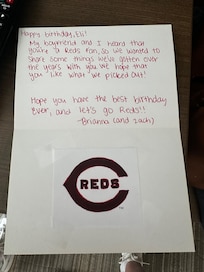 Happy birthday, Eli!
My boyfriend and I heard that
you're a Reds fan, so we wanted to
share some things we've gotten over
the years with you. We hope that
you like what we picked out!
Hope you have the best birthday
ever, and let's go Reds!!
-Brianna (and Zach)
REDS